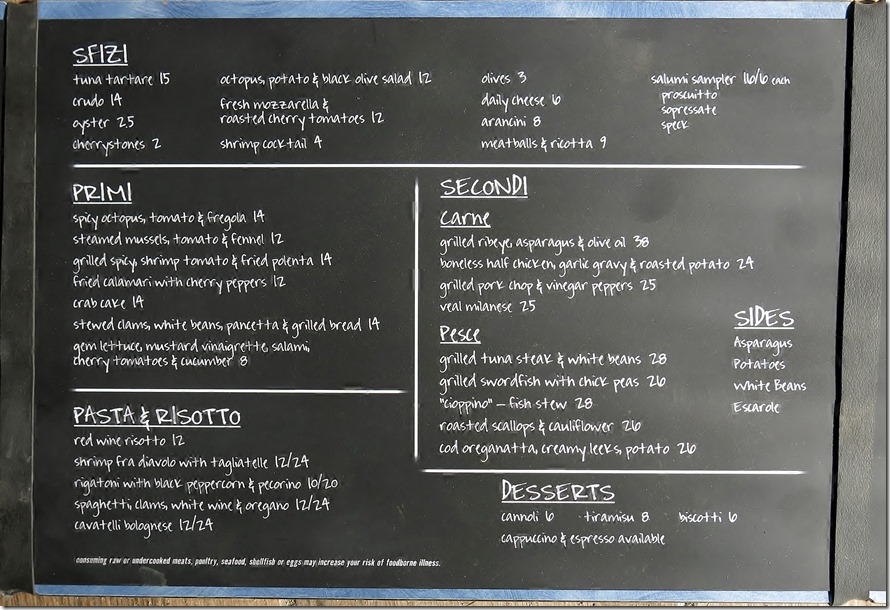 SFIZI
tuna tartare 15
crudo 14
oyster 2.5
cherrystones 2
octopus, potato & black olive salad 12
fresh mozzarella &
roasted cherry tomatoes 12
shrimp cocktail 4
olives 3
daily cheese 6
arancini 8
meatballs & ricotta 9
salumi sampler 16/6 each
proscuitto
sopressate
speck
PRIMI
spicy octopus, tomato & fregola 14
steamed mussels, tomato & fennel 12
grilled spicy, shrimp tomato & fried polenta 14
fried calamari with cherry peppers 12
crab cake 14
stewed clams, white beans, pancetta & grilled bread 14
gem lettuce, mustard vinaigrette, salami,
cherry tomatoes & cucumber 8
PASTA & RISOTTO
red wine risotto 12
shrimp fra diavolo with tagliatelle 12/24
rigatoni with black peppercorn & pecorino 10/20
spaghetti, clams, white wine & oregano 12/24
cavatelli bolognese 12/24
consuming raw or undercooked meats, poultry, seafood, shellfish or eggs may increase your risk of foodborne illness.
SECONDI
Carne
grilled ribeye, asparagus & olive oil 38
boneless half chicken, garlic gravy & roasted potato 24
grilled pork chop & vinegar peppers 25
veal milanese 25
Pesce
grilled tuna steak & white beans 28
grilled swordfish with chick peas 26
"cioppino" – fish stew 28
roasted scallops & cauliflower 26
cod oreganatta, creamy leeks, potato 26
SIDES
Asparagus
Potatoes
White Beans
Escarole
DESSERTS
cannoli 6 tiramisu 8 biscotti 6
cappuccino & espresso available